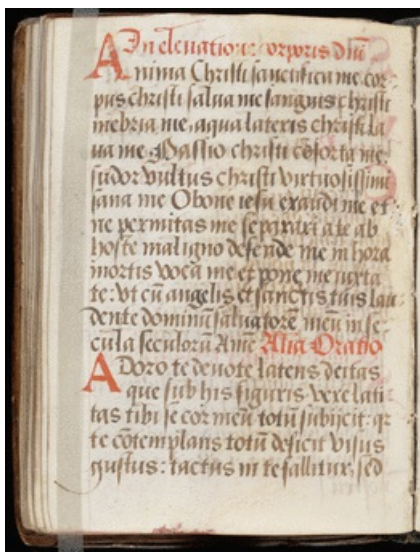 In eleuatione corporis dñi
Anima Christi sanctifica me cor
pus christi salua me sanguis christi
inebria me, aqua lateris christi la
ua me Passio christi cõforta me:
sudor vultus christi virtuosissimi
sana me O bone iesu exaudi me et
ne permitas me separari a te ab
hoste maligno defende me in hora
mortis voca me et pone me iuxta
te: vt cũ angelis et sanctis tuis lau
dente dominũ saluatorẽ meũ in se
cula seculorũ Ame Alia Oratio
Adoro te deuote latens deitas
que sub his figuris vere lati
tas tibi se cor meũ totũ subijcit: qr
te cõtemplans totũ deficit visus
gustus: tactus in te fallitur, sed